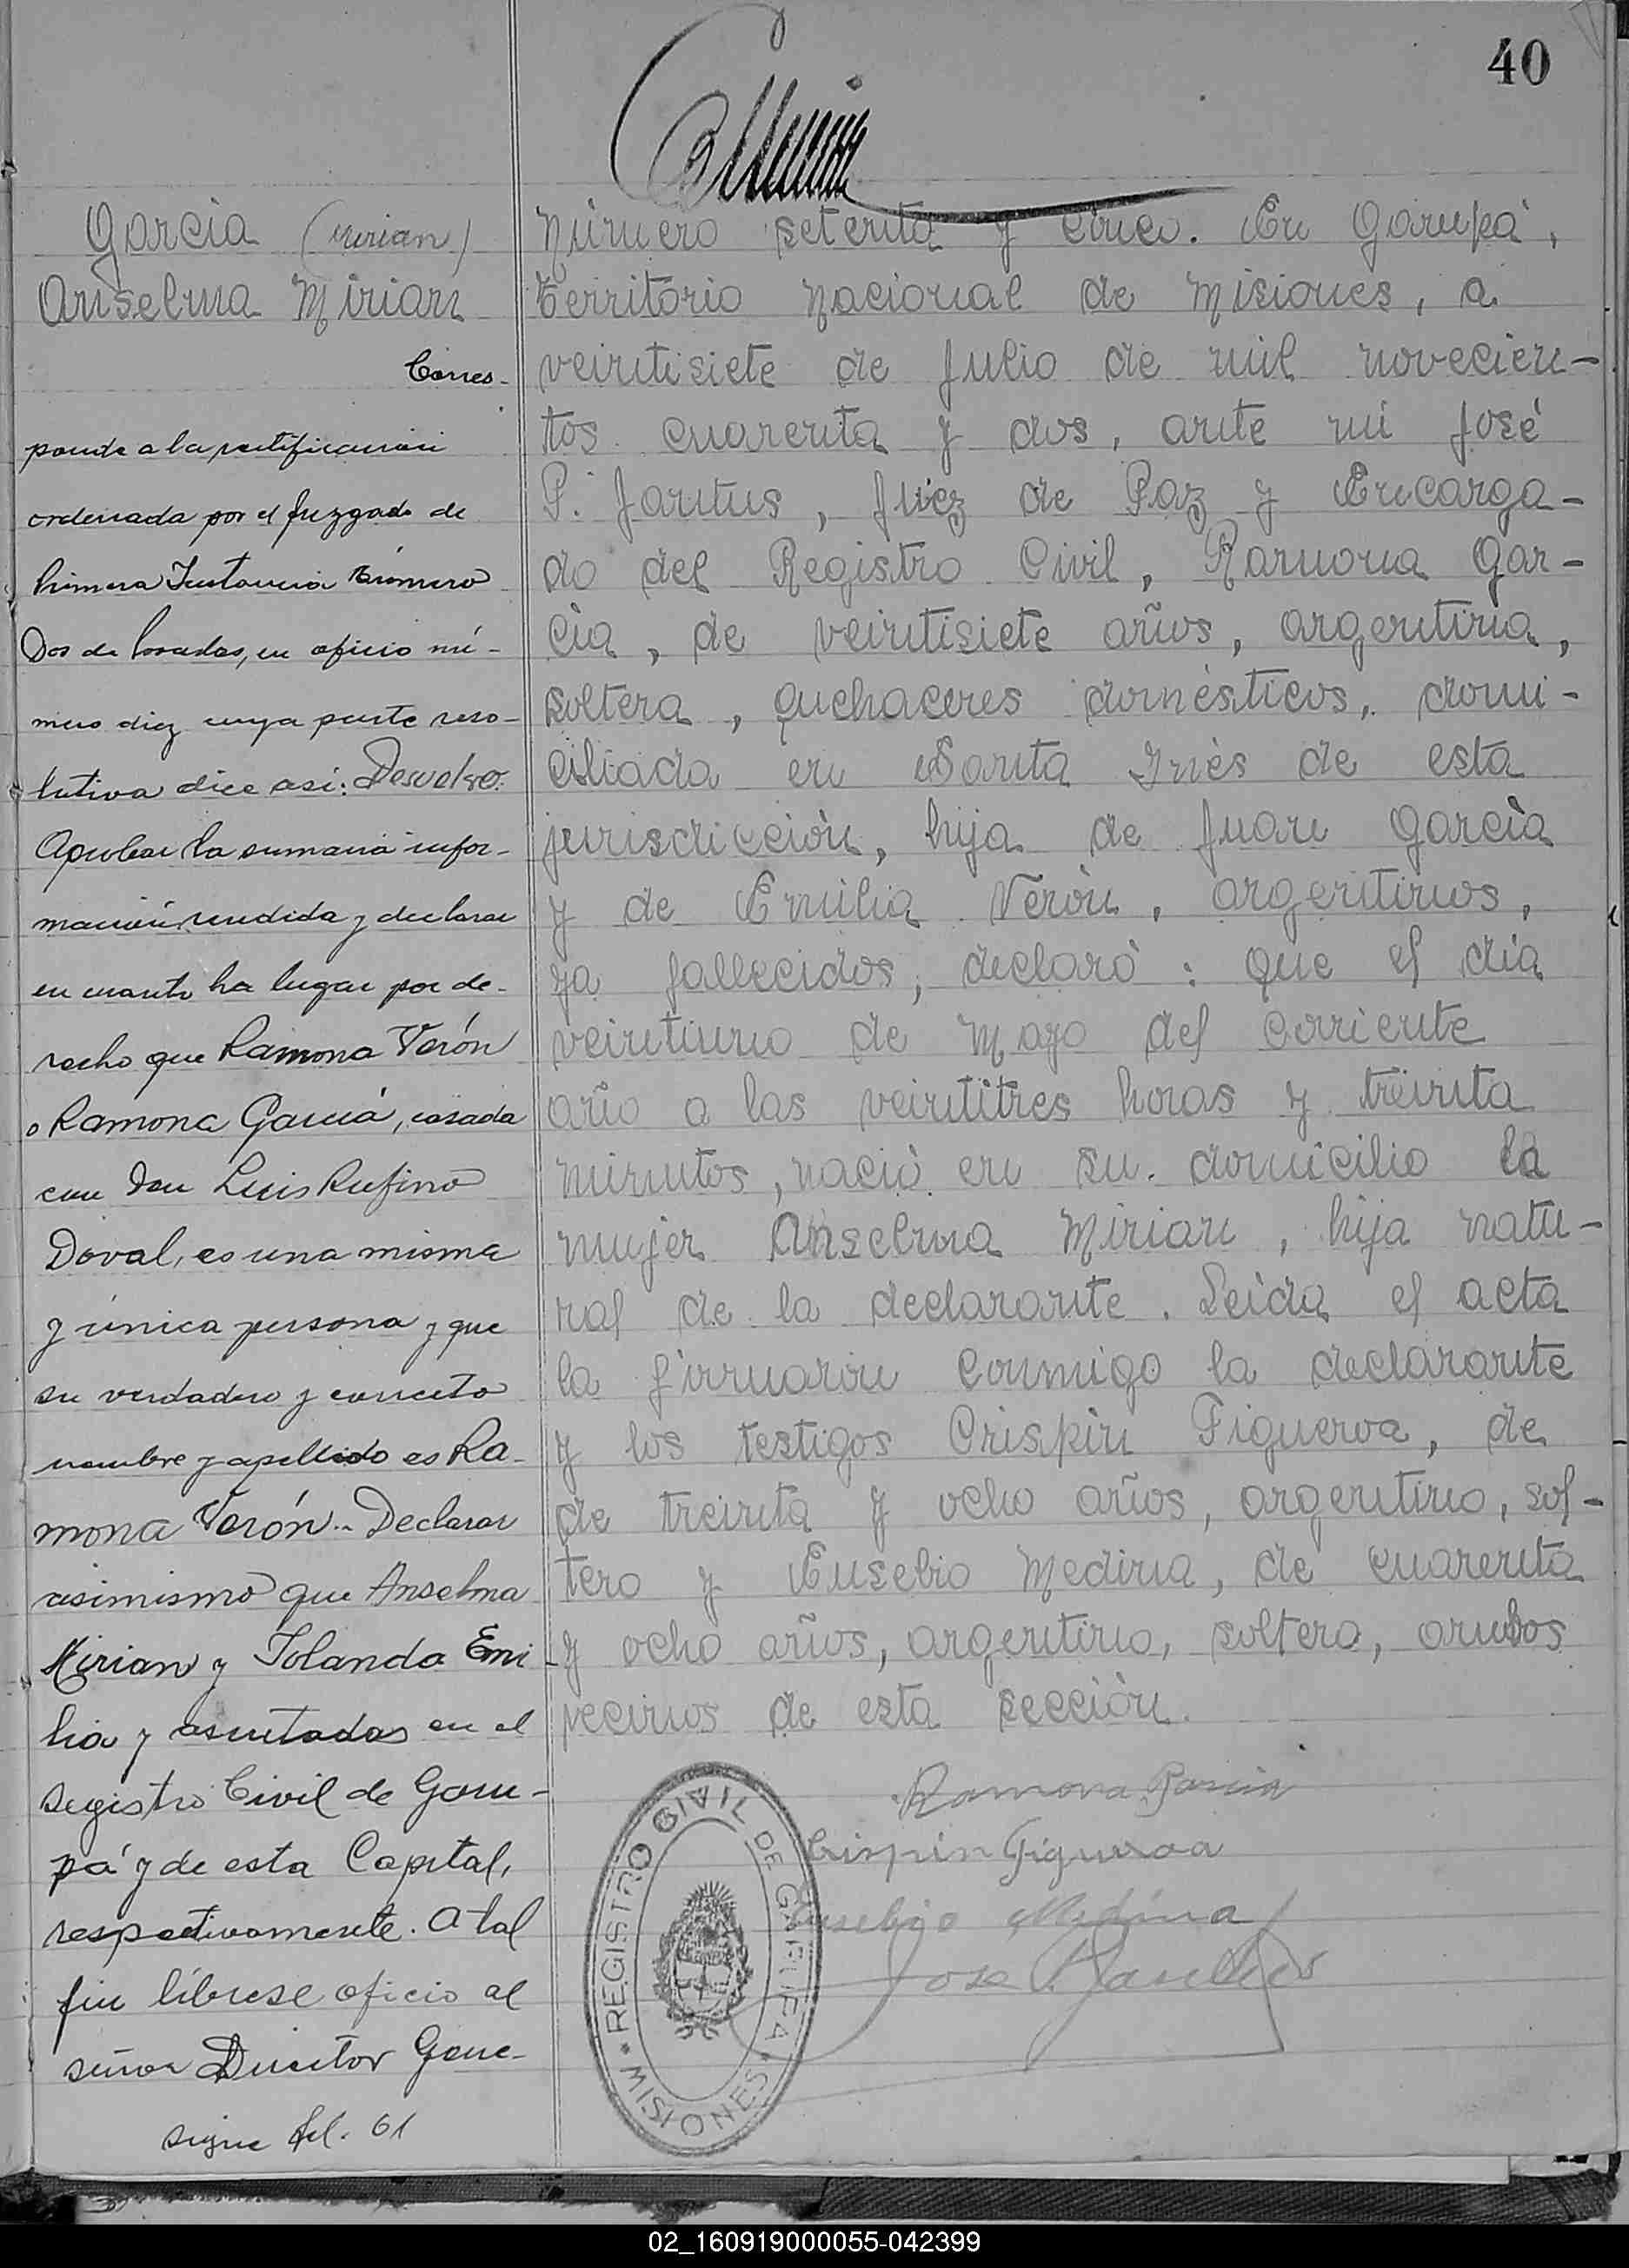 40
Garcia (Mirian)
Anselma Mirian
Corres-
ponde a la rectificación
ordenada por el Juzgado de
Primera Instancia Número
Dos de Posadas, en oficio nú-
mero diez cuya parte reso-
lutiva dice así: Resuelvo:
Aprobar la sumaria infor-
mación rendida y declarar
en cuanto ha lugar por de-
recho que Ramona Verón
o Ramona García, casada
con Don Luis Rufino
Doval, es una misma
y única persona y que
su verdadero y correcto
nombre y apellido es Ra-
mona Verón.- Declarar
asimismo que Anselma
Mirian y Iolanda Emi
lia y asentadas en el
registro Civil de Garu-
pá y de esta Capital,
respectivamente. A tal
fin líbrese oficio al
señor Director Gene-
sigue fol. 61
Número setenta y cinco. En Garupá,
Territorio Nacional de Misiones, a
veintisiete de Julio de mil novecien-
tos cuarenta y dos, ante mi José
P. Jantus, Juez de Paz y Encarga-
do del Registro Civil, Ramona Gar-
cia, de veintisiete años, argentina,
soltera, quehaceres domésticos, domi-
ciliada en Santa Inés de esta
jurisdicción, hija de Juan García
y de Emilia Verón, argentinos,
ya fallecidos, declaró: Que el día
veintiuno de Mayo del corriente
año a las veintitres horas y treinta
minutos, nació en su domicilio la
mujer Anselma Mirian, hija natu-
ral de la declarante. Leida el acta
la firmaron conmigo la declarante
y los testigos Crispin Figueroa, de
de treinta y ocho años, argentino, sol-
tero y Eusebio Medina, de cuarenta
y ocho años, argentino, soltero, ambos
vecinos de esta sección.
Ramona Garcia
Crispin Figueroa
Eusebio Medina
Jose P. Jantus
REGISTRO CIVIL DE GARUPA
MISIONES
02_160919000055-042399